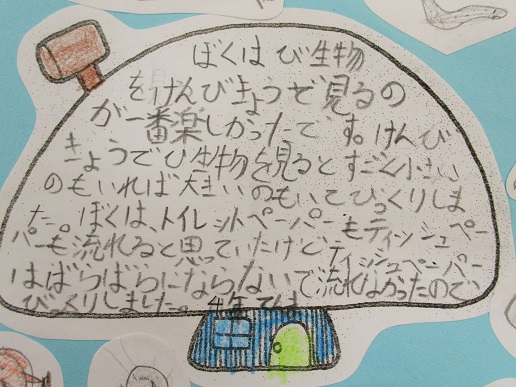 ぼくは び生物
をけんびきょうで見るの
が一番楽しかったです。けんび
きょうでび生物を見るとすごく小さい
のもいれば大きいのもいてびっくりしま
した。ぼくは、トイレットペーパーもティッシュペー
パーも流れると思っていたけどティッシュペーパー
はばらばらにならないで流れなかったので
びっくりしました。4年